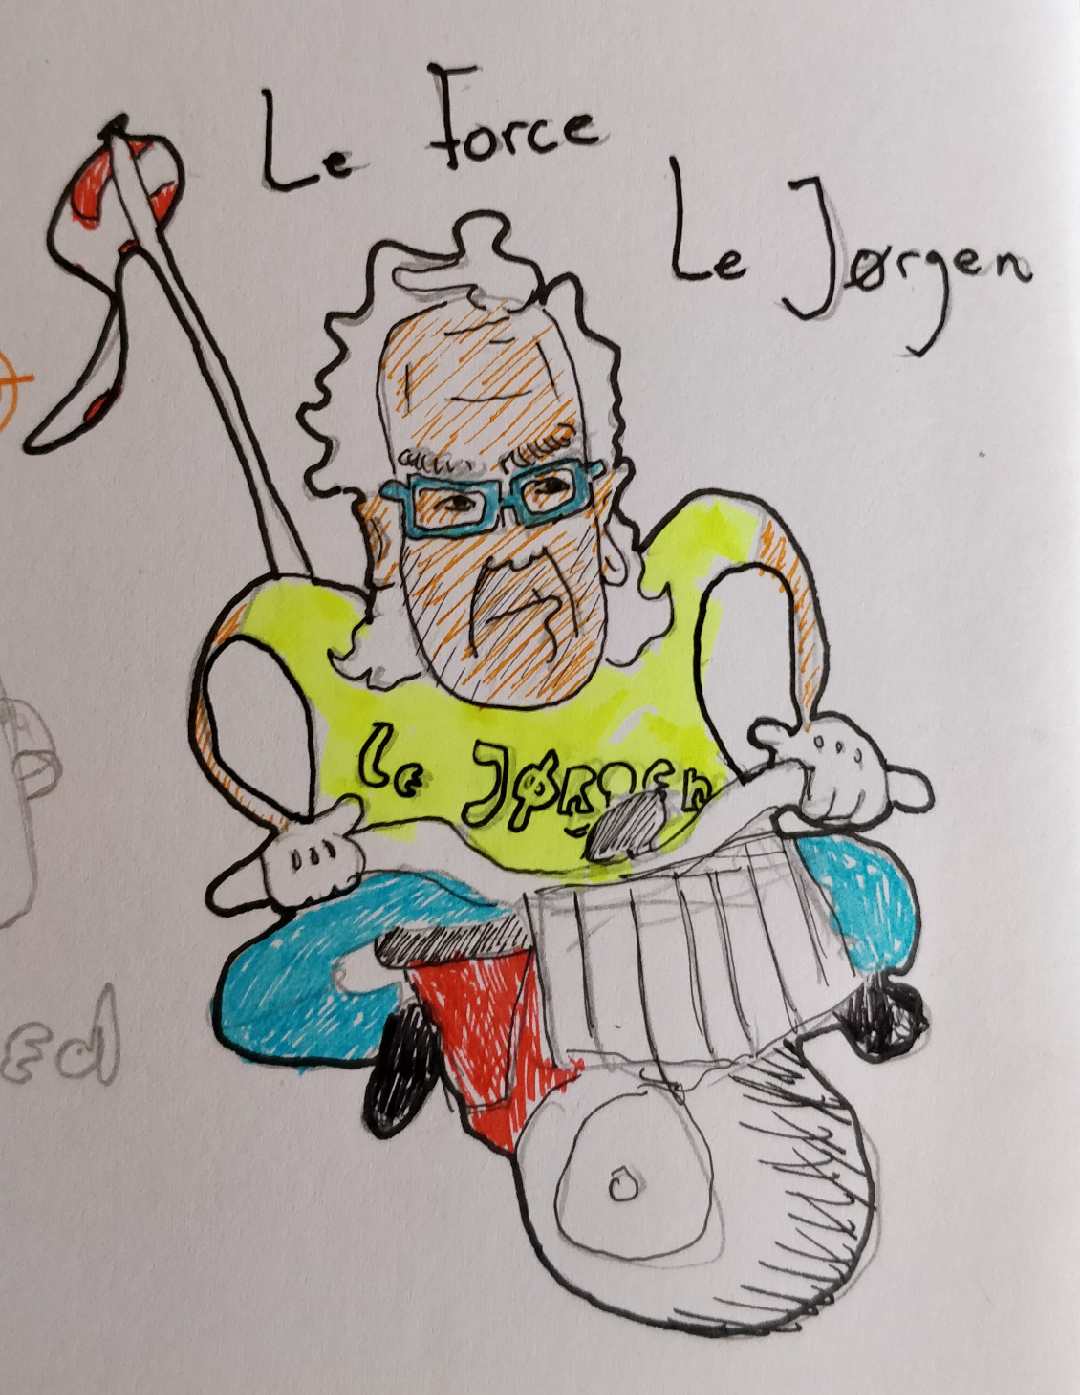 Le Force
Le Jørgen
Le Jørgen
ed